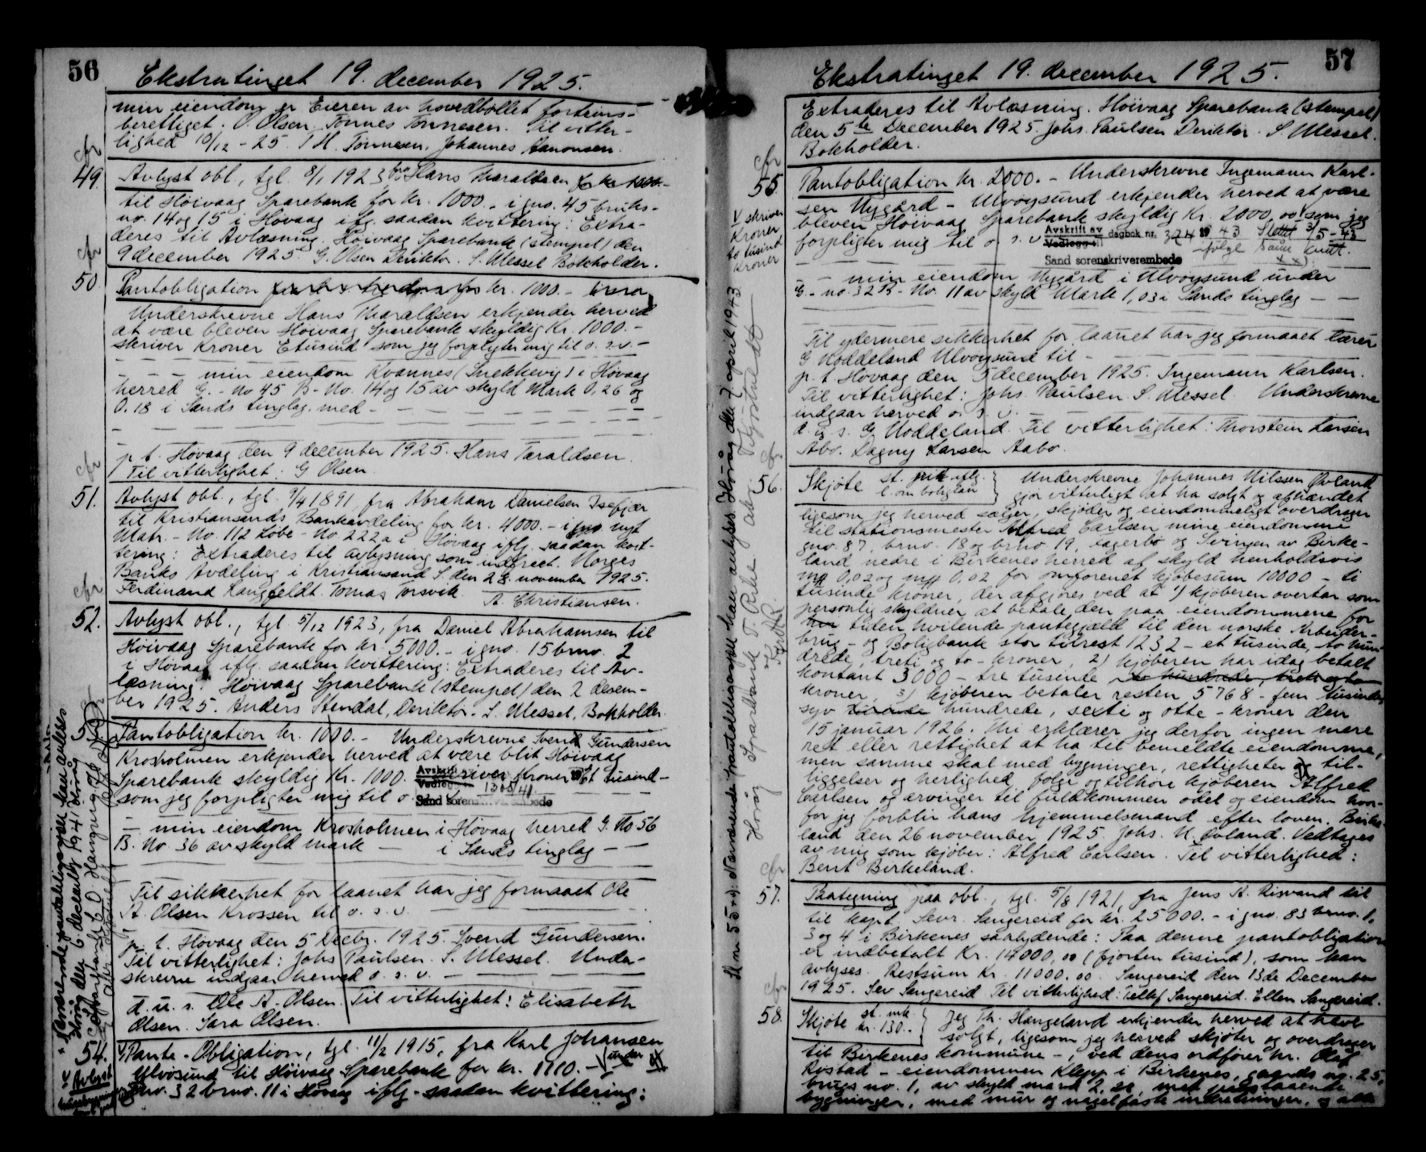 56
Ekstratinget 19. december 1925.
min eiendom er Eieren av hovedbøllet fortrins-
berettiget. O. Olsen Tønnes Tønnesen. Til vitter-
lighed 10/12 - 25. Tønnesen, Johannes Aanonsen.
cfr
49. Avlyst obl., tgl. 1923, fra Hans Taraldsen
til Höivaag Sparebank for kr. 1000.- i gno. 45 bruks-
no. 14 og 15 i Høvaag iflg. saadan kvittering: Extra-
deres til Avlæsning. Höivaag Sparebank (stempel) den
9 december 1925 G. Olsen Deriktør. S. Messel Bokholder.
cfr
50. Pantobligation kr. 1000.-
Underskrevne Hans Taraldsen erkjender herved
at være bleven Höivaag Sparebank skyldig Kr. 1000.-
skriver Kroner Etusind som jeg forpligter mig til o. s. v. -
- - - min eiendom Kvannes (Snekkevig) i Høvaag
herred G. - No 45 B-No. 14 og 15 av skyld Mark 0,26 og
0,18 i Sands tinglag, med -
p. t. Høvaag den 9 december 1925. Hans Taraldsen.
Til vitterlighet: G Olsen
cfr
51. Avlyst obl., tgl. 1/4 1891, fra Abraham Danielsen Isefjær
til Kristiansands Bankavdeling for kr. 4000.- i nyt
Matr. - No 112 Løbe - No. 222a i Høvaag iflg. saadan kvit-
tering: Extraderes til avlysning som indfriet. Norges
Banks Avdeling i Kristiansand S. den 28. november 1925.
Ferdinand Langfeldt. Tomas
A. Christiansen.
cfr
52. Avlyst obl., tgl 5/12 1923, fra Daniel Abrahamsen til
Höivaag Sparebank for kr. 5000.- i gno. 15 brno. 2
i Høvaag iflg. saadan kvittering: Extraderes til Av-
læsning. Höivaag Sparebank (stempel) den 2 Desem-
ber 1925. Anders Stendal, Deriktør. S. Messel, Bokholder.
Pantobligation kr. 1000.- Underskrevne Svend Gundersen
Krosholmen erkjender herved at være blit Höivaag
Sparebank skyldig Kr. 1000. skriver Kroner et tusind -
Avskrift
Vedlegg 1305/41
Sand sorenskriverembede
som jeg forpligter mig til o
- min eiendom Krosholmen i Høvaag herred G. No 56
B. No 36 av skyld mark - i Sands tinglag -
Til sikkerhet for laanet har jeg formaaet Ole
A. Olsen Krossen til o. s. v
p. t. Høvaag den 5 Decbr. 1925. Svend Gundersen.
Til vitterlighet: Johs Paulsen. S. Messel. Under-
skrevne indgaar herved o. s. v. -
d. u. s. Ole A. Olsen. Til vitterlighet: Elisabeth
Olsen. Sara Olsen.
54. Pante-Obligation, tgl. 11/2 1915, fra Karl Johansen
Ulvøsund til Höivaag Sparebank for kr. 1110.-
gno. 32 brno. 11 i Høvåg iflg. saadan kvittering:
Avlyst
57
Ekstratinget 19. december 1925.
Extraderes til Avlæsning. Höivaag Sparebank (stempel)
den 5te December 1925. Johs. Paulsen Deriktør. S Messel.
Bokholder.
cfr
55 Pantobligation kr. 2000.- Underskrevne Ingemann Karl-
sen Nygård - Ulvøysund erkjender herved at være
bleven Höivaag Sparebank skyldig Kr. 2000,00 som jeg
forpligter mig til o. s. v
skriver
Kroner
to tusind
kroner
Avskrift av dagbok nr. 324 19 43
Vedlegg til
Sand sorenskriverembede
- - min eiendom Nygård i Ulvøysund under
G - no. 32 B - No 11 av skyld Mark 1,03 i Sands tinglag -
Til ydermere sikkerhet for laanet har jeg formaaet lærer
G Noddeland Ulvøysund til -
p. t Høvaag den 5 december 1925. Ingemann Karlsen.
Til vitterlighet: Johs Paulsen S. Messel. Underskrevne
indgaar herved o. s. v. -
d. u. s. G. Noddeland. Til vitterlighet: Thorstein Larsen
Abo. Dagny Larsen Aabo.
56. Skjøte Underskrevne Johannes Nilssen Øvland
gjør vitterligt at ha solgt og avhændet
ligesom jeg herved sælger, skjøder og eiendommeligt overdrager
til stationsmester Alfred Carlsen mine eiendomme
gno. 87, brno. 18 og brno 19, Lagerbo og Svingen av Birke-
land nedre i Birkenes herred af skyld henholdsvis
mk 0,02 og mk 0,02 for omforenet kjøbesum 10000 - ti
tusinde kroner, der afgjøres ved at 1) kjøberen overtar som
personlig skyldner at betale den paa eiendommene for
tiden hvilende pantegjæld til den norske Arbeider-
brug - og Boligbank stor tilrest 1232 - et tusinde, to hun-
drede, treti og to - kroner, 2) kjøberen har idag betalt
kontant 3000 - tre tusinde
kroner 3) kjøberen betaler resten 5768 - fem tusinde,
syv hundrede, sexti og otte - kroner den
15 januar 1926. Thi erklærer jeg derfor ingen mere
ret eller rettighet at ha til bemeldte eiendomme,
men samme skal med bygninger, rettigheter, til-
liggelser og herlighed følge og tilhøre kjøberen Alfred
Carlsen og arvinger til fuldkommen odel og eiendom hvor-
for jeg forblir hans hjemmelsmand efter loven. Birke-
land den 26 november 1925. Johs. N. Øvland. Vedtages
av mig som kjøber: Alfred Carlsen. Til vitterlighed:
Bent Birkeland.
cfr
57. Paategning paa obl., tgl. 5/8 1921, fra Jens A. Risvand til
til kapt. Sevr. Sangereid for kr. 25000.- i gno. 83 brno. 1,
3 og 4 i Birkenes saalydende: Paa denne pantobligation
er indbetalt Kr. 14000,00 (fjorten tusind), som kan
avlyses. Restsum Kr. 11000.00. Sangereid den 13de December
1925. Sev Sangereid Til vitterlighed: Tellef Sangereid. Ellen Sangereid.
cfr
58. Skjøte st. mk. kr. 130.- Jeg Th. Haugeland erkjender herved at have
solgt, ligesom jeg herved skjøter og overdrager
til Birkenes kommune -, ved dens ordfører hr. Olaf
Rostad - eiendommen Klepp i Birkenes, gaards no. 25,
bruks no. 1, av skyld mark 2, med paastaaende
bygninger, med mur og nagelfaste indretninger, og alle